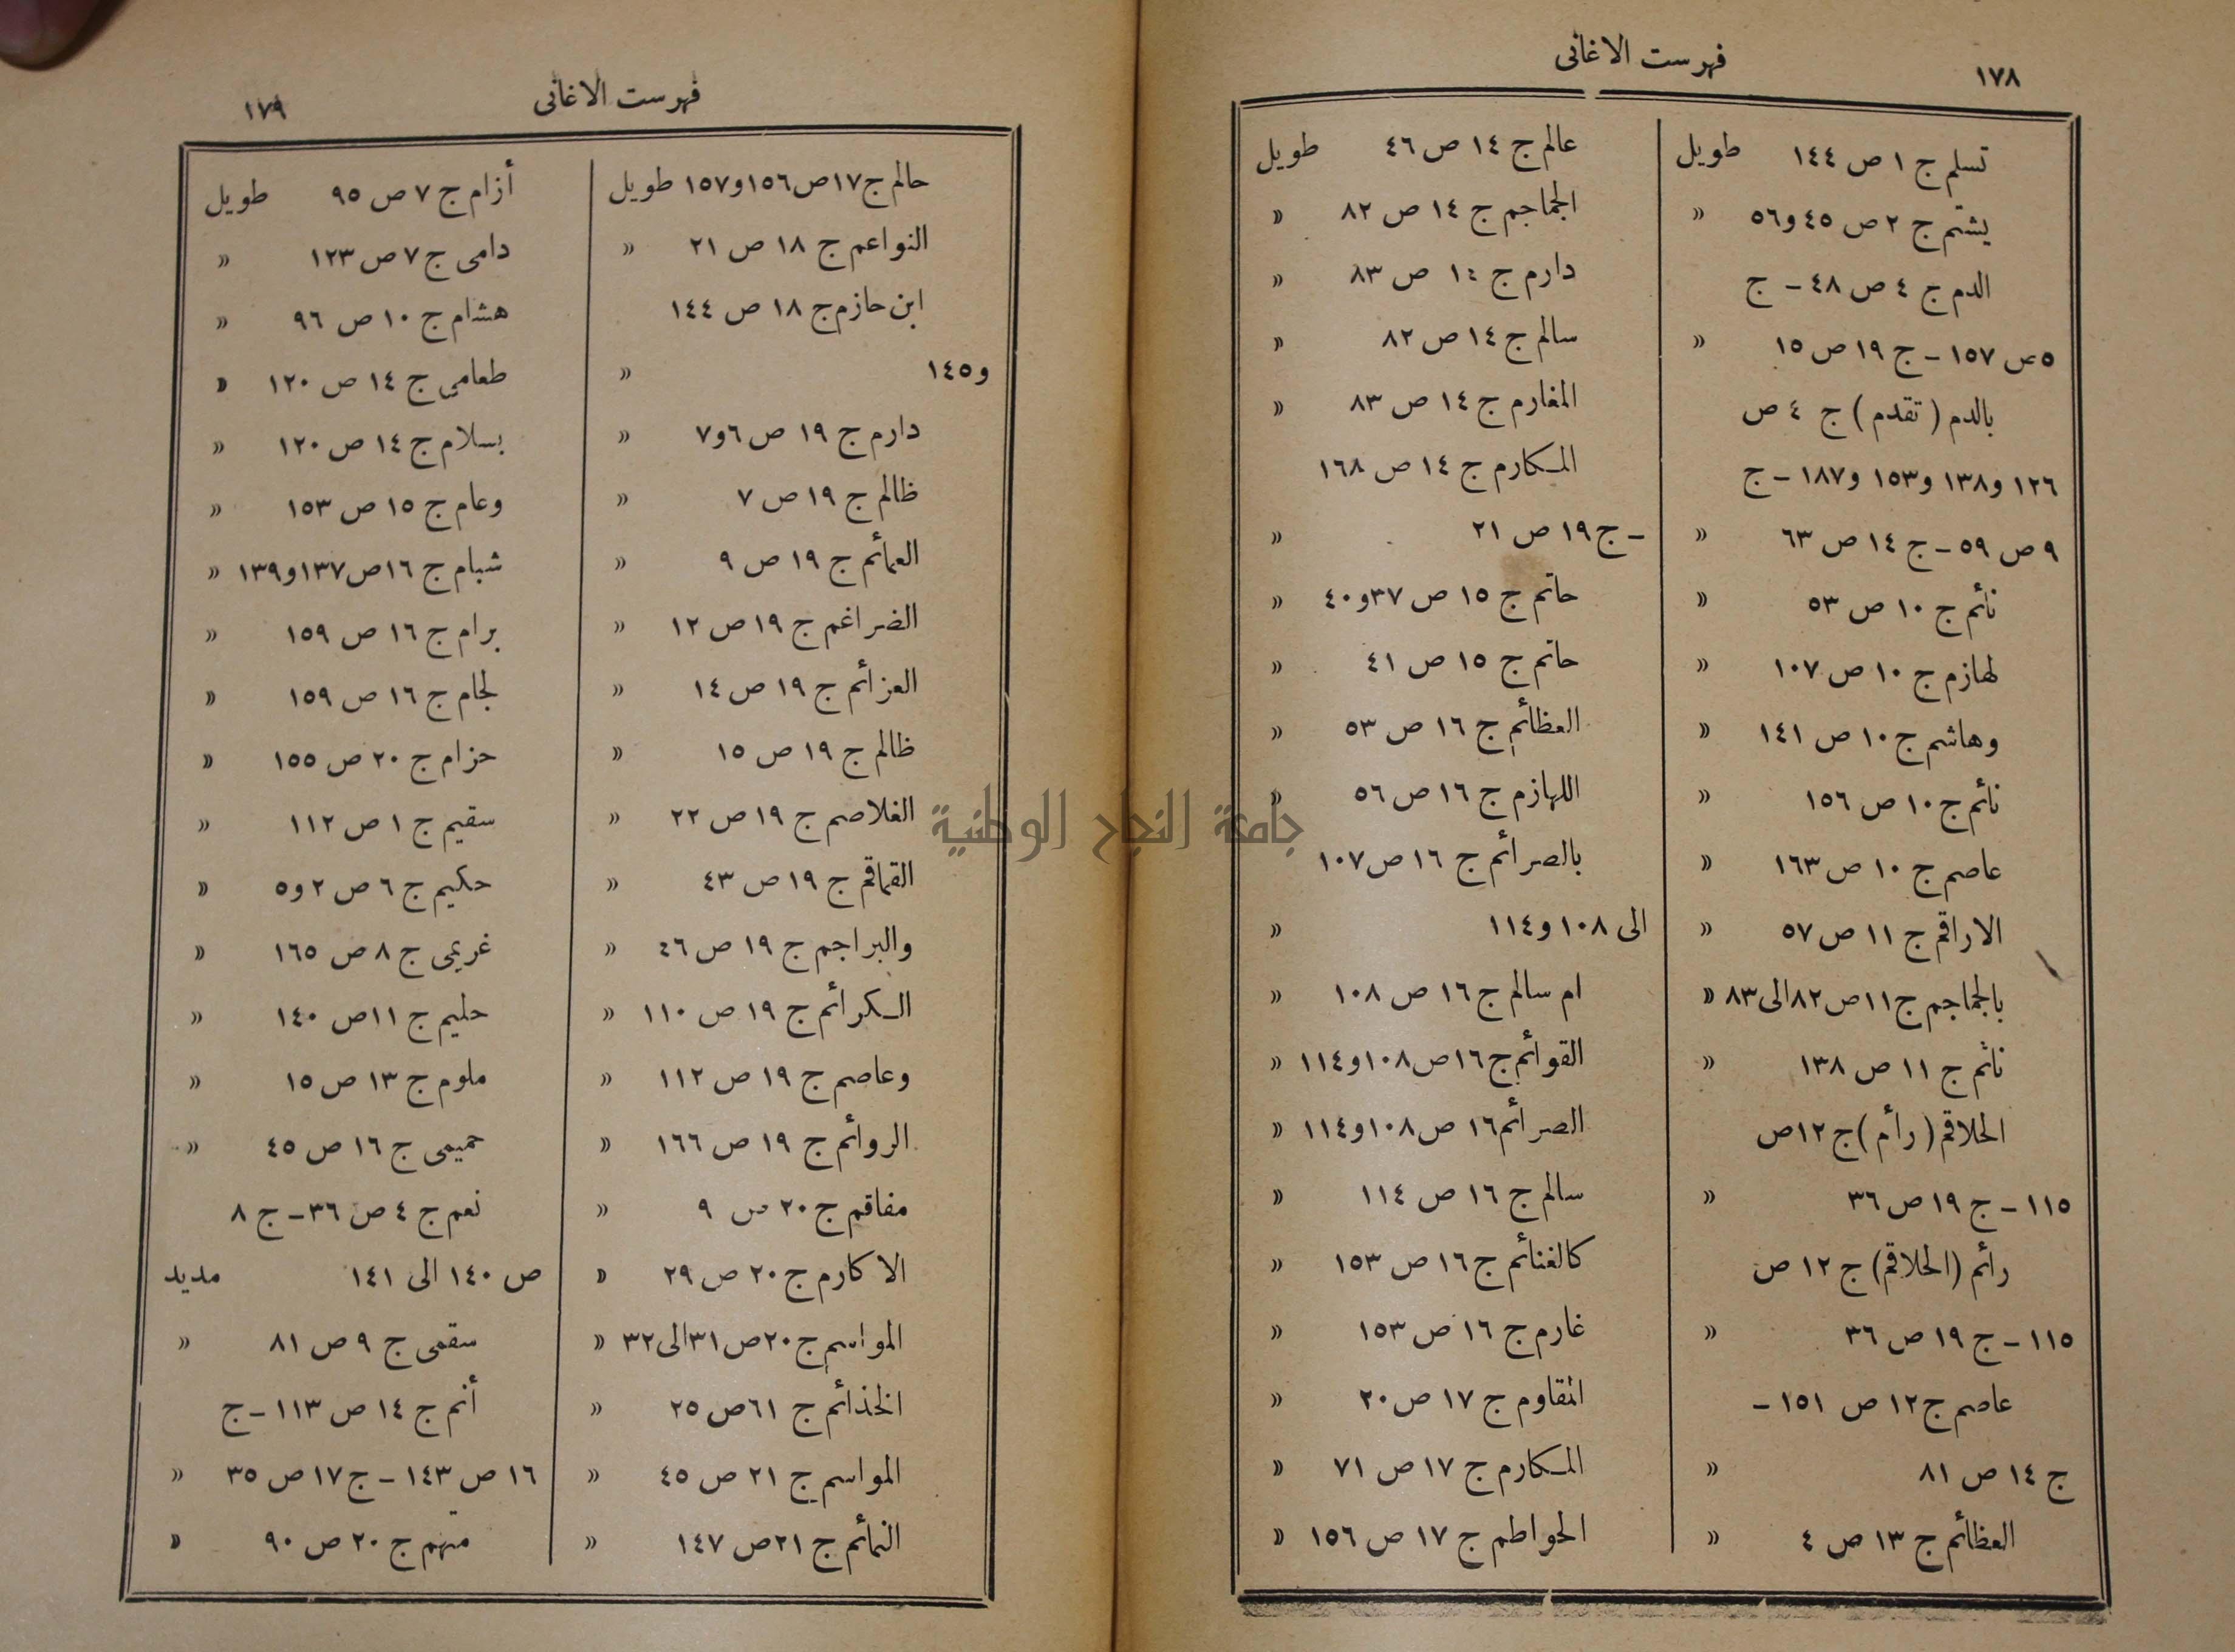 ١٧٨
فهرست الاغانى
تسلم ج ١ ص ١٤٤ طويل
يشتم ج ٢ ص ٤٥ و٥٦ «
الدم ج ٤ ص ٤٨ - ج
٥ ص ١٥٧ - ج ١٩ ص ١٥ «
بالدم ( تقدم ) ج ٤ ص
١٢٦ و١٣٨ و١٥٣ و١٨٧ - ج
٩ ص ٥٩ - ج ١٤ ص ٦٣ «
نائم ج ١٠ ص ٥٣ «
لهازم ج ١٠ ص ١٠٧ «
وهاشم ج ١٠ ص ١٤١ «
نائم ج ١٠ ص ١٥٦ «
عاصم ج ١٠ ص ١٦٣ «
الاراقم ج ١١ ص ٥٧ «
بالجماجم ج ١١ ص ٨٢ الى ٨٣ «
نائم ج ١١ ص ١٣٨ «
الحلاقم ( رأم ) ج ١٢ ص
١١٥ - ج ١٩ ص ٣٦ «
رائم (الحلاقم) ج ١٢ ص
١١٥ - ج ١٩ ص ٣٦ «
عاصم ج ١٢ ص ١٥١ -
ج ١٤ ص ٨١ «
العظائم ج ١٣ ص ٤ «
عالم ج ١٤ ص ٤٦ طويل
الجماجم ج ١٤ ص ٨٢ «
دارم ج ١٤ ص ٨٣ «
سالم ج ١٤ ص ٨٢ «
المغارم ج ١٤ ص ٨٣ «
المكارم ج ١٤ ص ١٦٨
- ج ١٩ ص ٢١ «
حاتم ج ١٥ ص ٣٧ و٤٠ «
حاتم ج ١٥ ص ٤١ «
العظائم ج ١٦ ص ٥٣ «
اللهازم ج ١٦ ص ٥٦ «
بالصرائم ج ١٦ ص ١٠٧
الى ١٠٨ و١١٤ «
ام سالم ج ١٦ ص ١٠٨ «
القوائم ج ١٦ ص ١٠٨ و١١٤ «
الصرائم ١٦ ص ١٠٨ و١١٤ «
سالم ج ١٦ ص ١١٤ «
كالغنائم ج ١٦ ص ١٥٣ «
غارم ج ١٦ ص ١٥٣ «
المقاوم ج ١٧ ص ٢٠ «
المكارم ج ١٧ ص ٧١ «
الحواطم ج ١٧ ص ١٥٦ «
فهرست الاغانى
١٧٩
حالم ج ١٧ ص ١٥٦ و١٥٧ طويل
النواعم ج ١٨ ص ٢١ «
ابن حازم ج ١٨ ص ١٤٤
و١٤٥ «
دارم ج ١٩ ص ٦ و٧ «
ظالم ج ١٩ ص ٧ «
العمائم ج ١٩ ص ٩ «
الضراغم ج ١٩ ص ١٢ «
العزائم ج ١٩ ص ١٤ «
ظالم ج ١٩ ص ١٥ «
الغلاصم ج ١٩ ص ٢٢ «
القماقم ج ١٩ ص ٤٣ «
والبراجم ج ١٩ ص ٤٦ «
الكرائم ج ١٩ ص ١١٠ «
وعاصم ج ١٩ ص ١١٢ «
الروائم ج ١٩ ص ١٦٦ «
مفاقم ج ٢٠ ص ٩ «
الاكارم ج ٢٠ ص ٢٩ «
المواسم ج ٢٠ ص ٣١ الى ٣٢ «
الخذائم ج ٦١ ص ٢٥ «
المواسم ج ٢١ ص ٤٥ «
النمائم ج ٢١ ص ١٤٧ «
أزام ج ٧ ص ٩٥ طويل
دامى ج ٧ ص ١٢٣ «
هشام ج ١٠ ص ٩٦ «
طعامى ج ١٤ ص ١٢٠ «
بسلام ج ١٤ ص ١٢٠ «
وعام ج ١٥ ص ١٥٣ «
شبام ج ١٦ ص ١٣٧ و١٣٩ «
برام ج ١٦ ص ١٥٩ «
لجام ج ١٦ ص ١٥٩ «
حزام ج ٢٠ ص ١٥٥ «
سقيم ج ١ ص ١١٢ «
حكيم ج ٦ ص ٢ و٥ «
غريمى ج ٨ ص ١٦٥ «
حليم ج ١١ ص ١٤٠ «
ملوم ج ١٣ ص ١٥ «
حميمى ج ١٦ ص ٤٥ «
نعم ج ٤ ص ٣٦ - ج ٨
ص ١٤٠ الى ١٤١ مديد
سقمى ج ٩ ص ٨١ «
أنم ج ١٤ ص ١١٣ - ج
١٦ ص ١٤٣ - ج ١٧ ص ٣٥ «
متهم ج ٢٠ ص ٩٠ «
جامعة النجاح الوطنية